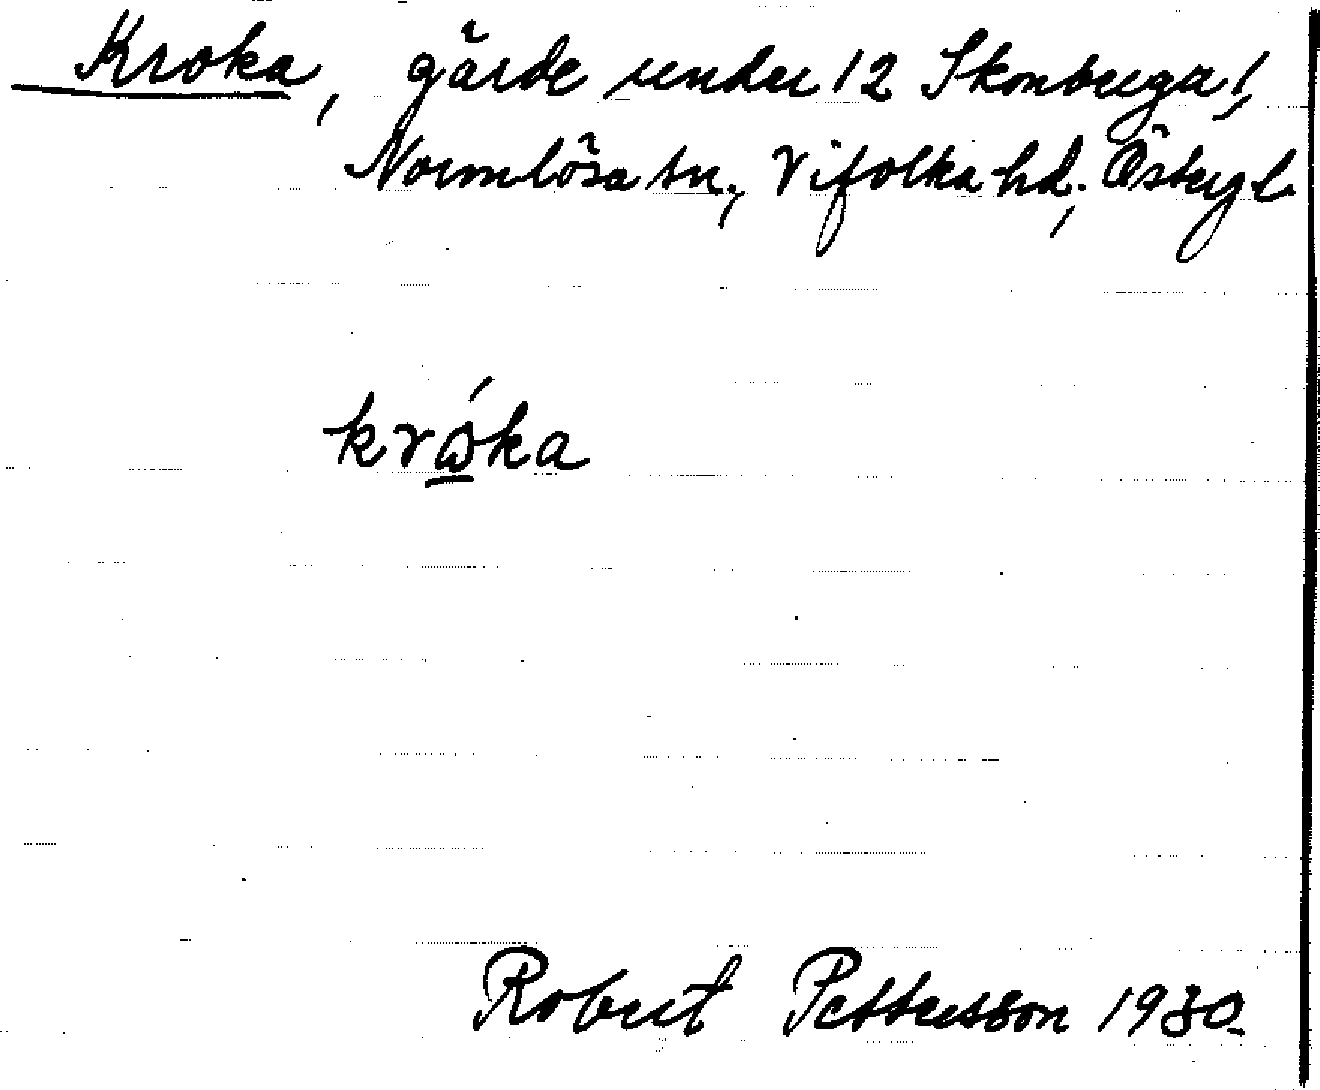 Kroka, gärde under 12 Skonberga!,
Normlösa sn., Vifolka hd., Östergl.
krώ̲ka
Robert Pettersson 1930.